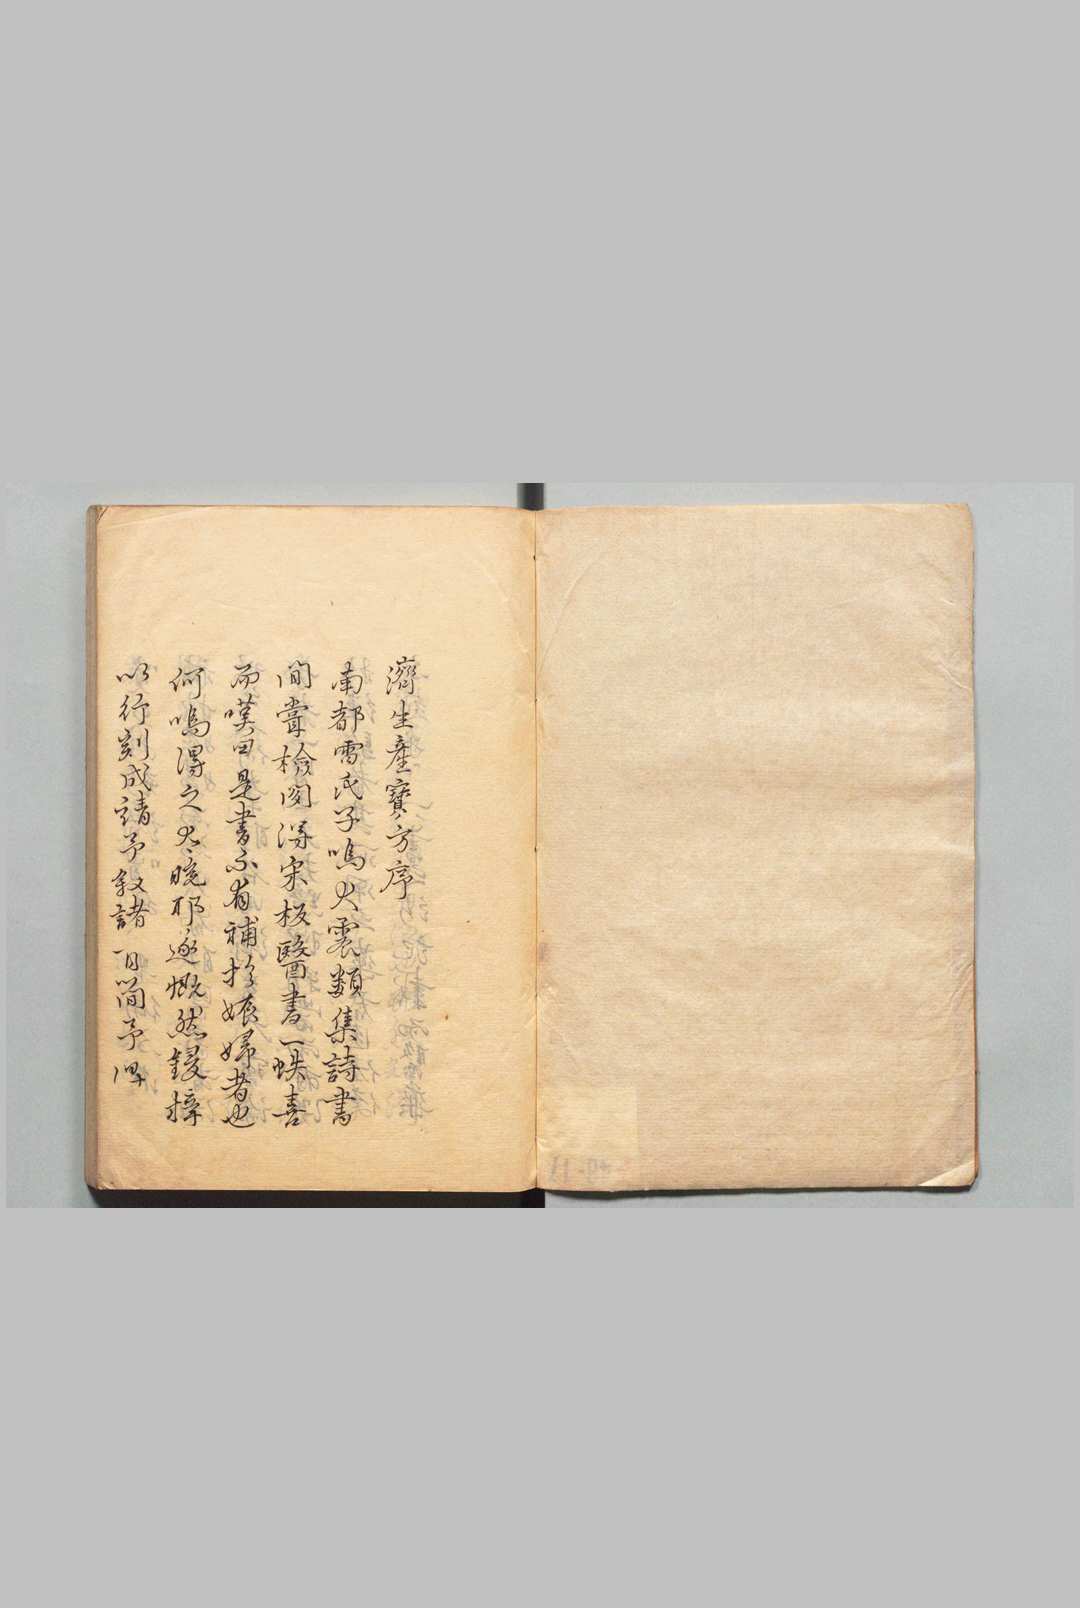 濟生產寶方序
南都雷氏子鳴大震類集詩書
間嘗檢閱得宋板醫書一帙喜
而嘆曰是書不有補於娠婦者也
何鳴得之大晩耶遂慨然鋟梓
以行刻成請予敘諸一日簡予俾